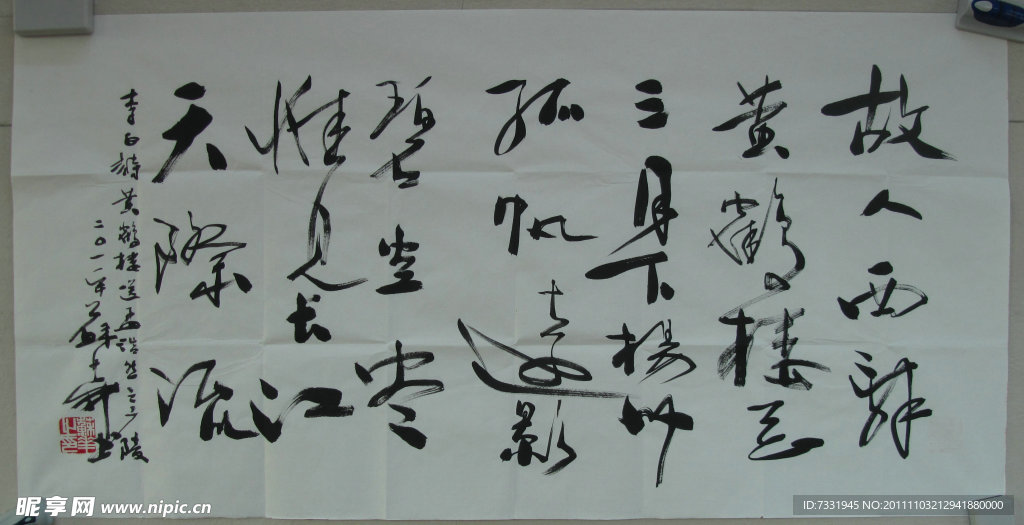 故人西辞
黄鶴楼
三月下楊州
孤帆遠影
碧空尽
惟见长江
天際流
李白詩黄鶴楼送孟浩然之广陵
二〇一一年
昵享网 www.nipic.cn
ID:7331945 NO:20111103212941880000